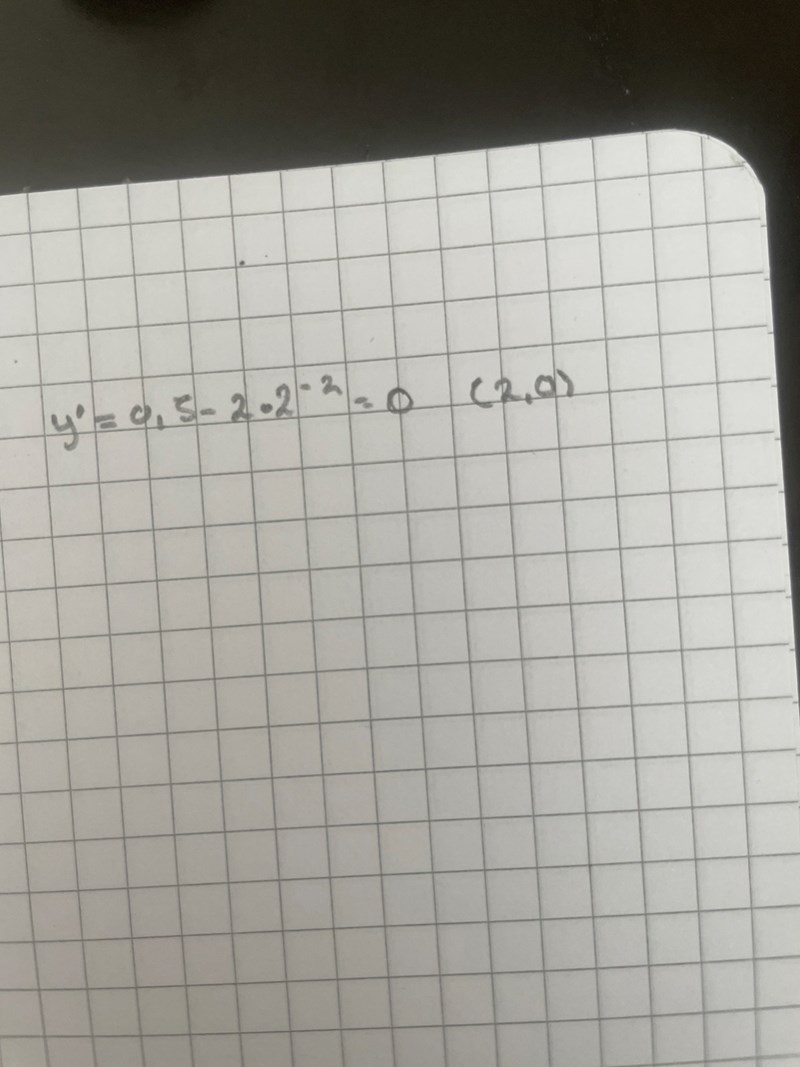 y' = 0,5 - 2 · 2⁻² = 0 (2,0)